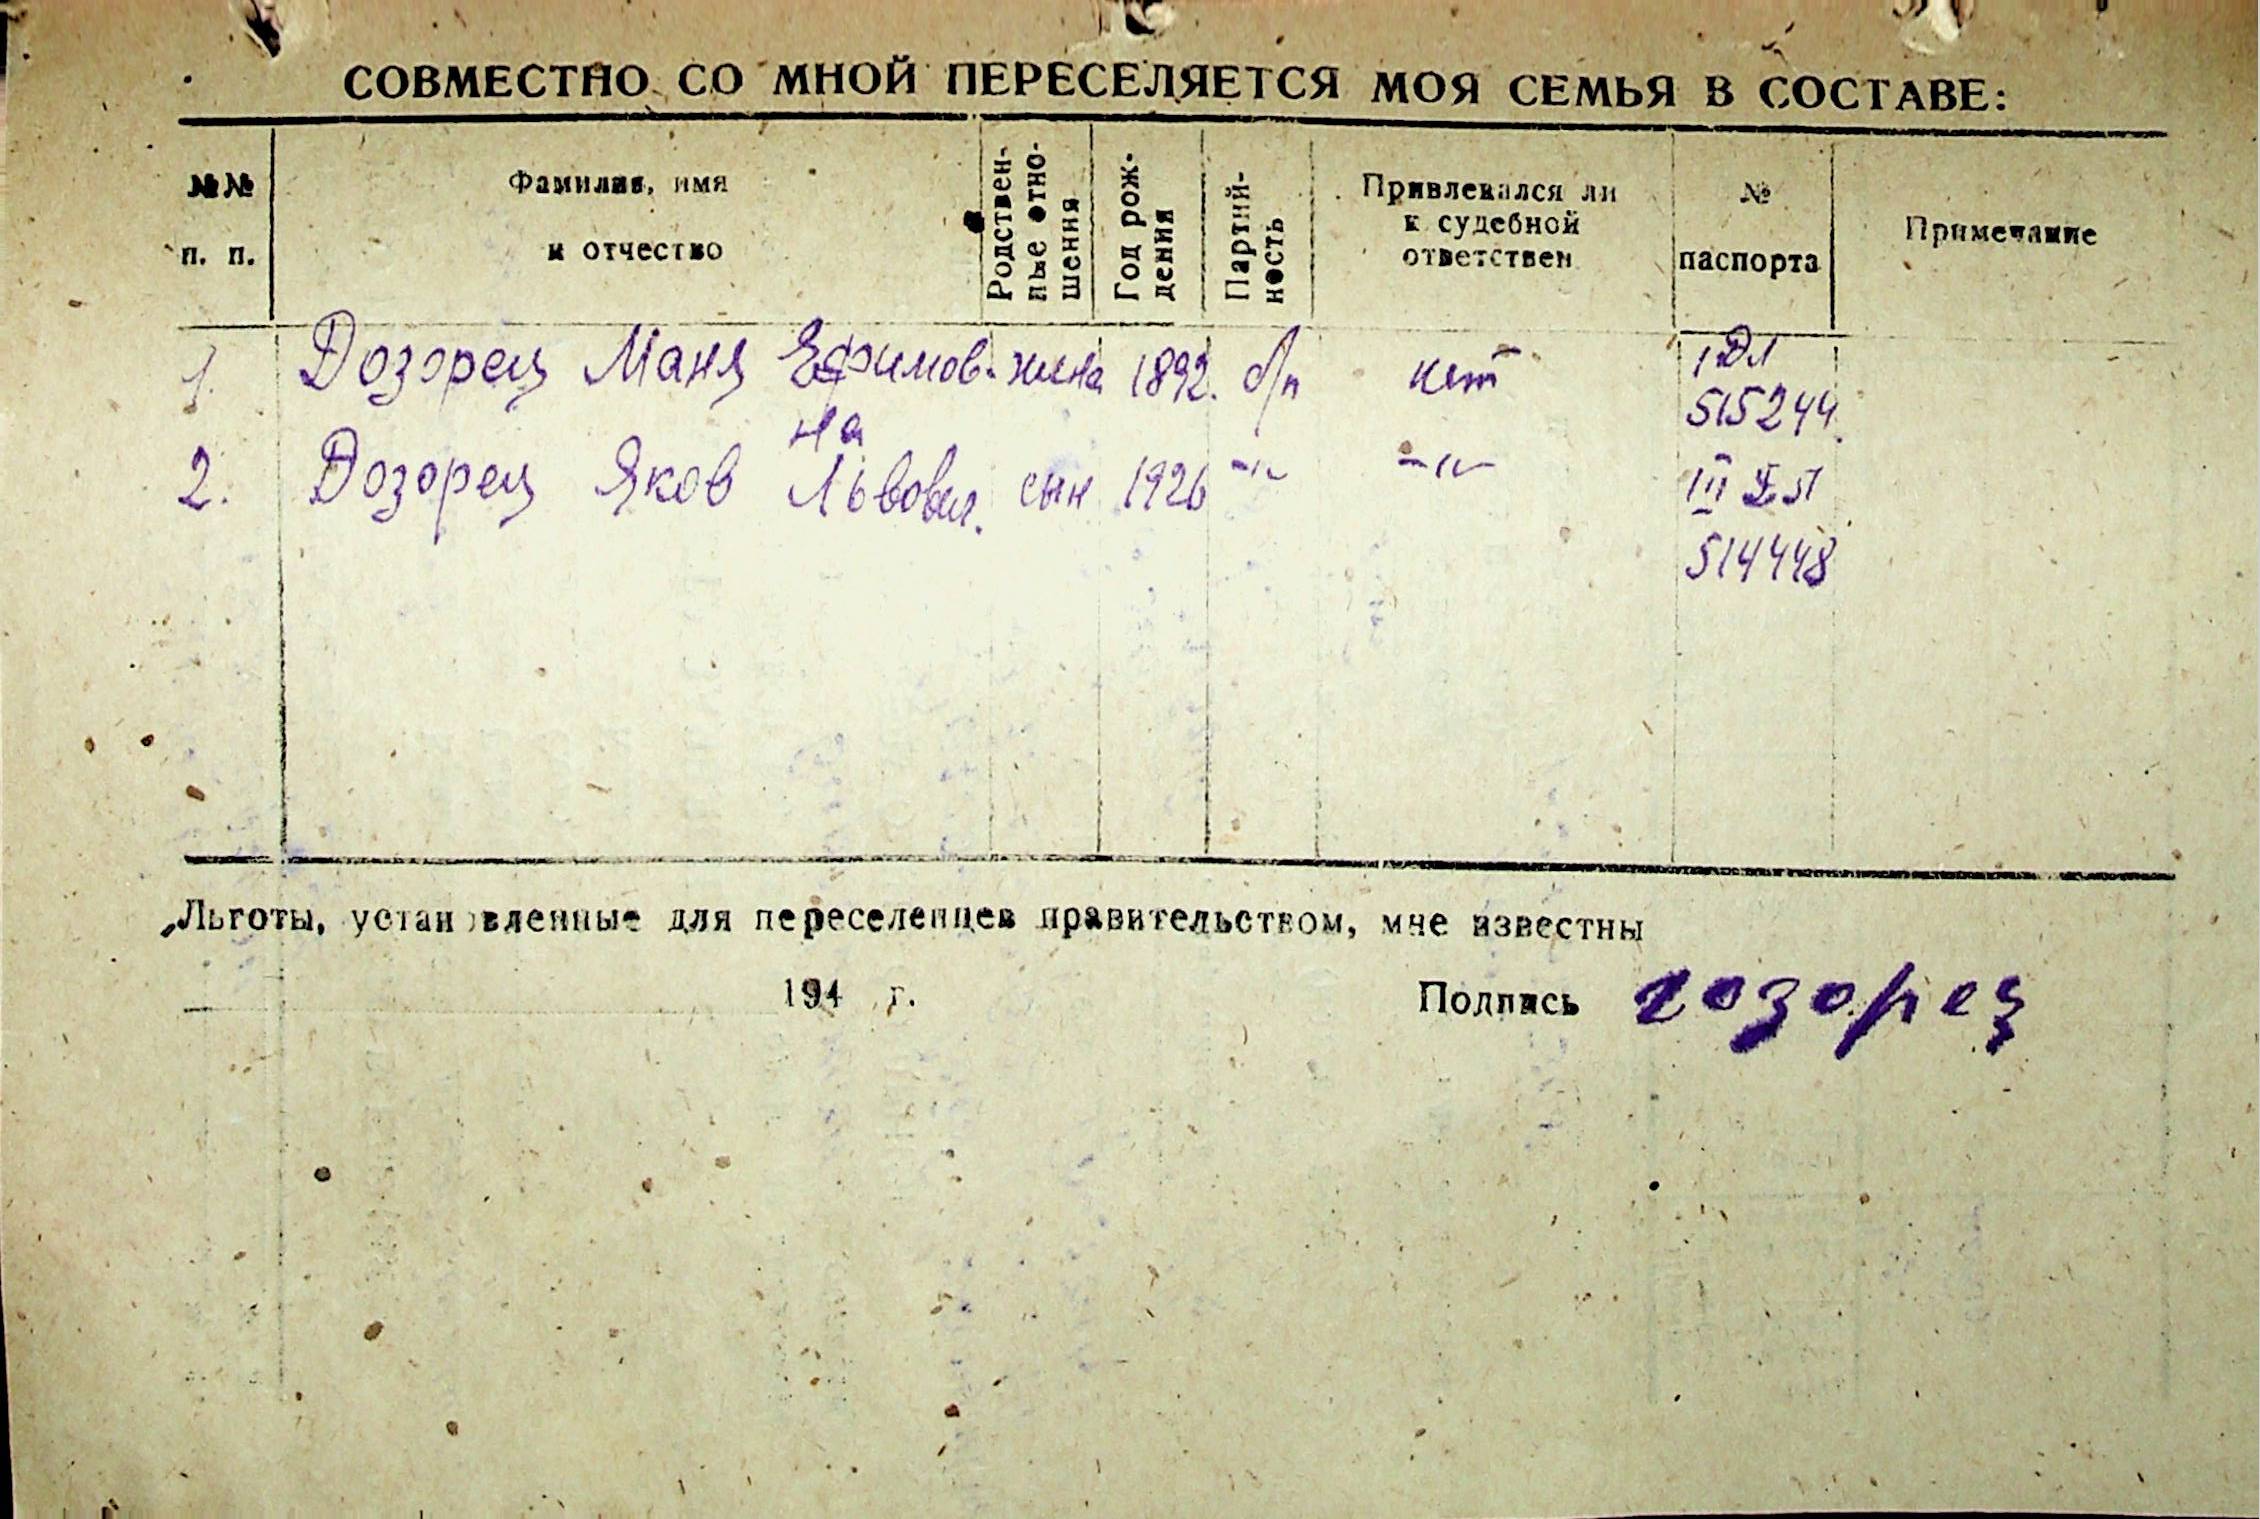 СОВМЕСТНО СО МНОЙ ПЕРЕСЕЛЯЕТСЯ МОЯ СЕМЬЯ В СОСТАВЕ:
№№ п. п.
Фамилия, имя и отчество
Родствен-
ные отно-
шения
Год рож-
дения
Партий-
ность
Привлекался ли
к судебной
ответствен
№
паспорта
Примечание
1. Дозорец Маня Ефимов- жена 1892. б/п нет 1 ДЛ
на 515244.
2. Дозорец Яков Львович. сын 1926 -"- -"- III
514448
Льготы, установленные для переселенцев правительством, мне известны
194 г. Подпись дозорец